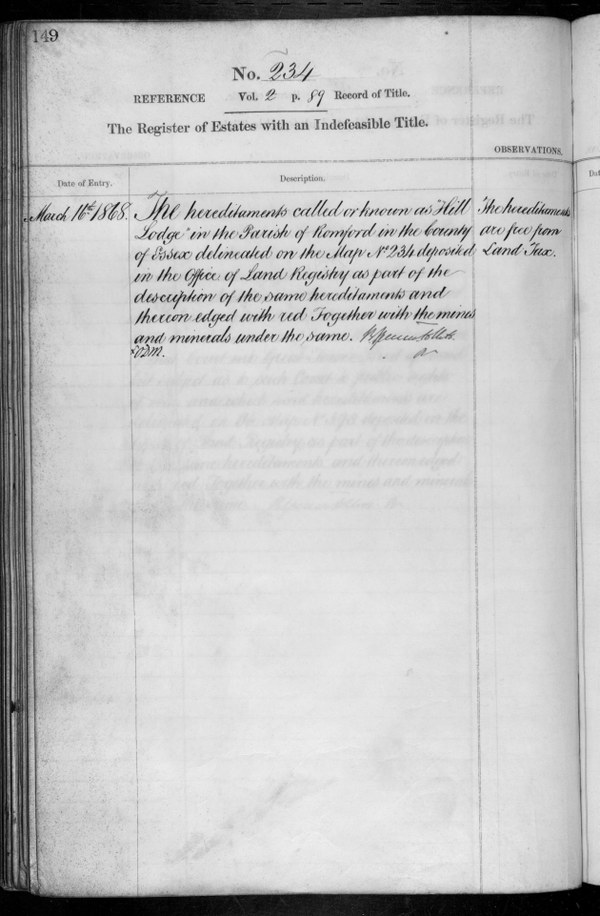 149
No. 234
REFERENCE Vol. 2 p. 89 Record of Title.
The Register of Estates with an Indefeasible Title.
OBSERVATIONS.
Date of Entry.
Description.
March 16th 1868.
The hereditaments called or known as "Hill
Lodge" in the Parish of Romford in the County
of Essex delineated on the Map No 234 deposited
in the Office of Land Registry as part of the
description of the same hereditaments and
thereon edged with red Together with the mines
and minerals under the same.
The hereditaments
are free from
Land Tax.